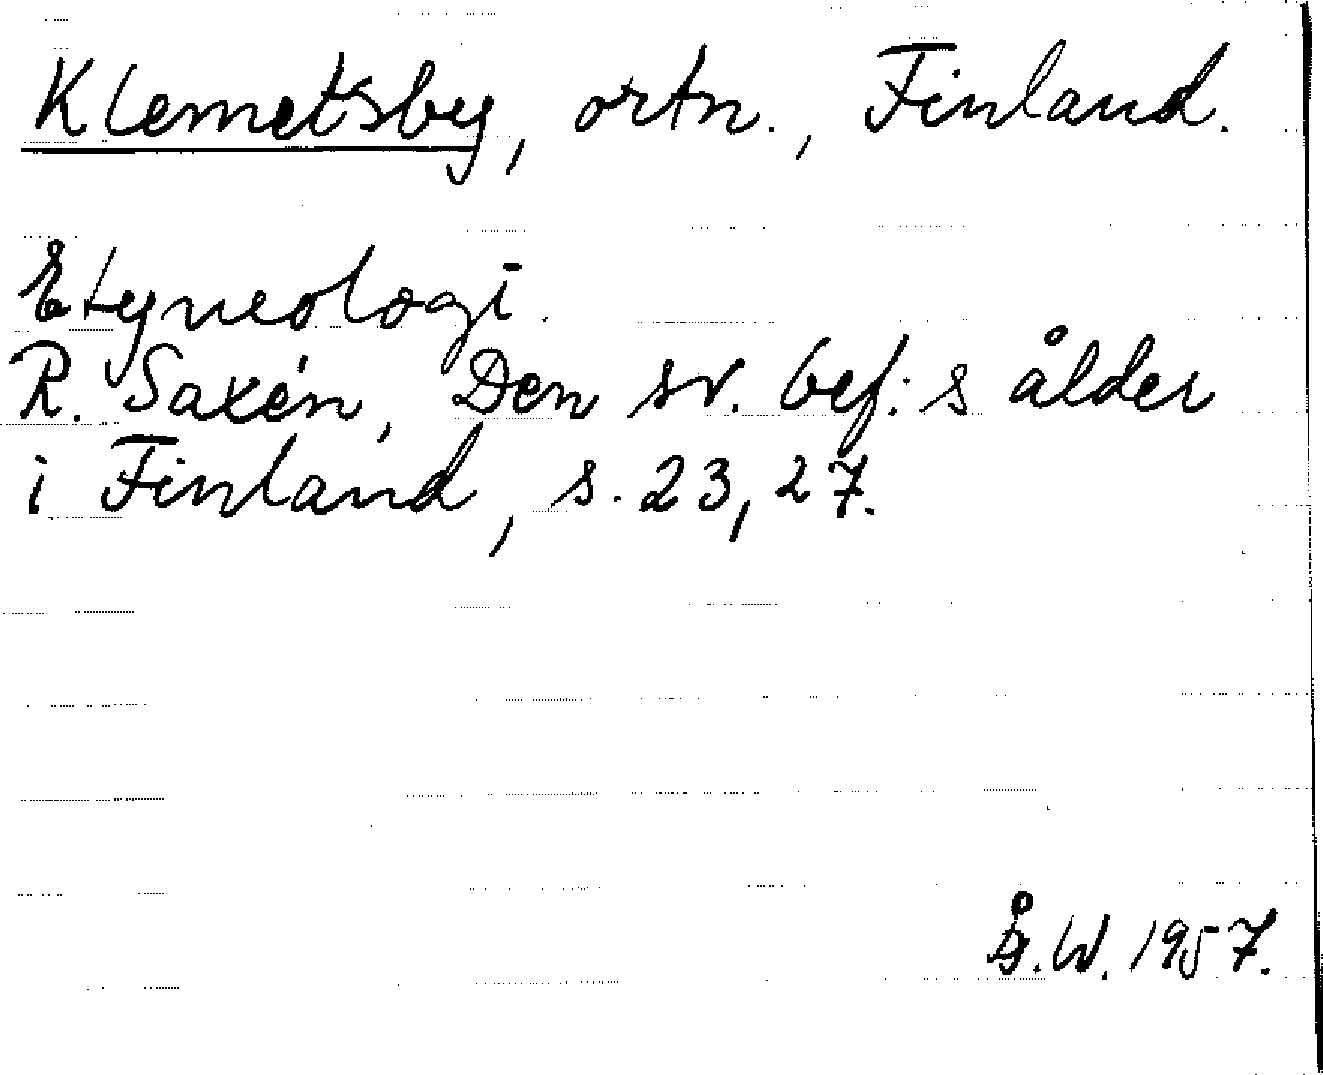 Klemetsby, ortn., Finland.
Etymologi.
R. Saxén, Den sv. bef:s ålder
i Finland, s. 23, 27.
Å.W. 1957.